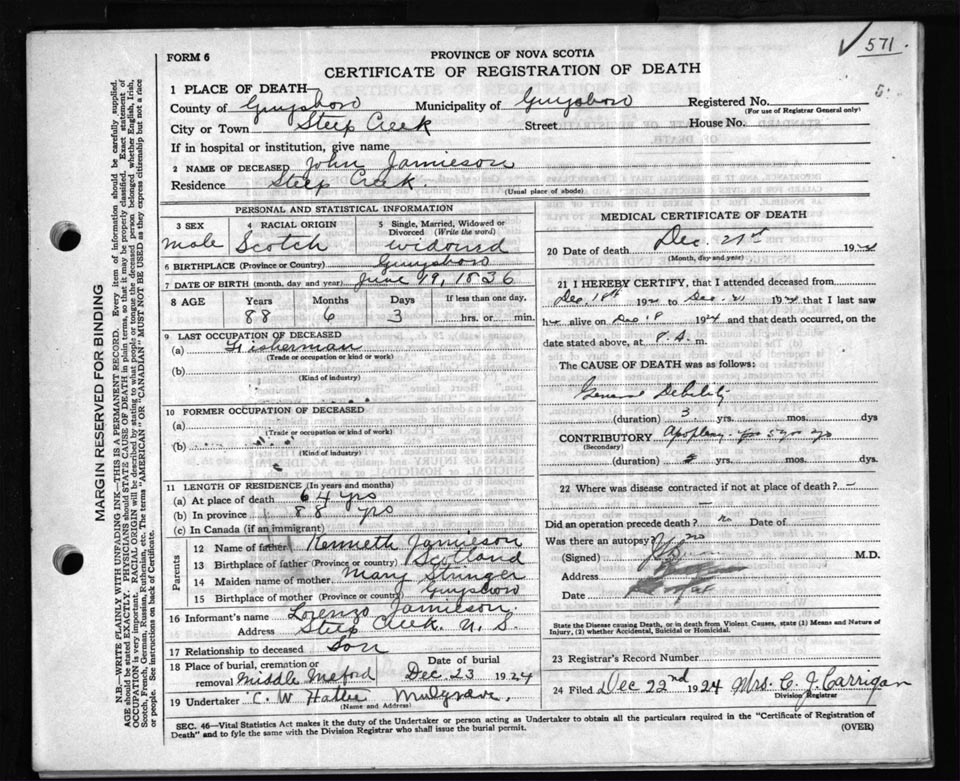 571.
FORM 6
PROVINCE OF NOVA SCOTIA
CERTIFICATE OF REGISTRATION OF DEATH
1 PLACE OF DEATH
County of Guysboro Municipality of Guysboro Registered No. 5.
(For use of Registrar General only)
City or Town Steep Creek Street House No.
If in hospital or institution, give name
2 NAME OF DECEASED John Jamieson
Residence Steep Creek.
(Usual place of abode)
PERSONAL AND STATISTICAL INFORMATION
3 SEX 4 RACIAL ORIGIN 5 Single, Married, Widowed or Divorced (Write the word)
male Scotch widowed
6 BIRTHPLACE (Province or Country) Guysboro
7 DATE OF BIRTH (month, day and year) June 19, 1836
8 AGE Years Months Days If less than one day.
88 6 3 hrs. or min.
9 LAST OCCUPATION OF DECEASED
(a) Fisherman
(Trade or occupation or kind or work)
(b)
(Kind of industry)
10 FORMER OCCUPATION OF DECEASED
(a)
(Trade or occupation or kind of work)
(b)
(Kind of industry)
11 LENGTH OF RESIDENCE (In years and months)
(a) At place of death 64 yrs
(b) In province 88 yrs
(c) In Canada (if an immigrant)
Parents
12 Name of father Kenneth Jamieson
13 Birthplace of father (Province or country) Scotland
14 Maiden name of mother Mary Stringer
15 Birthplace of mother (Province or country) Guysboro
16 Informant's name Lorenzo Jamieson.
Address Steep Creek. N. S.
17 Relationship to deceased Son
18 Place of burial, cremation or removal Middle Date of burial Dec 23 1924
19 Undertaker C. W. Mulgrave.
(Name and Address)
MEDICAL CERTIFICATE OF DEATH
20 Date of death Dec. 21st 1924
(Month, day and year)
21 I HEREBY CERTIFY, that I attended deceased from
Dec 18th 192 to Dec. 21 1924 that I last saw
h alive on Dec 18 1924 and that death occurred, on the
date stated above, at 8. A. m.
The CAUSE OF DEATH was as follows:
General Debility
(duration) 3 yrs. mos. dys
CONTRIBUTORY Apoplexy 5 yrs ago
(Secondary)
(duration) yrs. mos. dys.
22 Where was disease contracted if not at place of death? —
Did an operation precede death? no Date of
Was there an autopsy? no
(Signed) M.D.
Address
Date
State the Disease causing Death, or in death from Violent Causes, state (1) Means and Nature of Injury, (2) whether Accidental, Suicidal or Homicidal.
23 Registrar's Record Number
24 Filed Dec 22nd 1924 Mrs. C. J. Carrigan
Division Registrar
SEC. 46—Vital Statistics Act makes it the duty of the Undertaker or person acting as Undertaker to obtain all the particulars required in the "Certificate of Registration of
Death" and to fyle the same with the Division Registrar who shall issue the burial permit.
(OVER)
MARGIN RESERVED FOR BINDING
N.B.—WRITE PLAINLY WITH UNFADING INK—THIS IS A PERMANENT RECORD. Every item of information should be carefully supplied.
AGE should be stated EXACTLY. PHYSICIANS should STATE CAUSE OF DEATH in plain terms, so that it may be properly classified. Exact statement of
OCCUPATION is very important. RACIAL ORIGIN will be described by stating to what people or tongue the deceased person belonged, whether English, Irish,
Scotch, French, German, Russian, Ruthenian, etc. The terms "AMERICAN" OR "CANADIAN" MUST NOT BE USED as they express citizenship but not a race
or people. See instructions on back of Certificate.